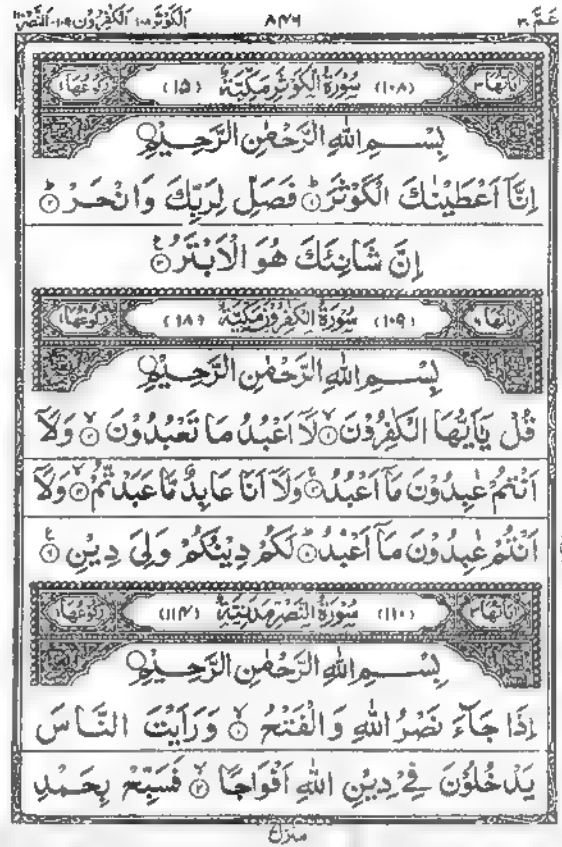 عَمَّ ٣٠ ٨٤٦ اَلْكَوْثَر ١٠٨ اَلْكٰفِرُوْن ١٠٩ اَلنَّصْر ١١٠
اٰيَاتُهَا ٣ (١٠٨) سُوْرَةُ الْكَوْثَرِ مَكِّيَّةٌ (١٥) رُكُوْعُهَا ١
بِسْمِ اللّٰهِ الرَّحْمٰنِ الرَّحِيْمِ
اِنَّآ اَعْطَيْنٰكَ الْكَوْثَرَ ۝١ؕ فَصَلِّ لِرَبِّكَ وَانْحَرْ ۝٢ؕ
اِنَّ شَانِئَكَ هُوَ الْاَبْتَرُ ۝٣
اٰيَاتُهَا ٦ (١٠٩) سُوْرَةُ الْكٰفِرُوْنَ مَكِّيَّةٌ (١٨) رُكُوْعُهَا ١
بِسْمِ اللّٰهِ الرَّحْمٰنِ الرَّحِيْمِ
قُلْ يٰٓاَيُّهَا الْكٰفِرُوْنَ ۝١ۙ لَآ اَعْبُدُ مَا تَعْبُدُوْنَ ۝٢ۙ وَلَآ
اَنْتُمْ عٰبِدُوْنَ مَآ اَعْبُدُ ۝٣ۚ وَلَآ اَنَا عَابِدٌ مَّا عَبَدْتُّمْ ۝٤ۙ وَلَآ
اَنْتُمْ عٰبِدُوْنَ مَآ اَعْبُدُ ۝٥ؕ لَكُمْ دِيْنُكُمْ وَلِيَ دِيْنِ ۝٦
اٰيَاتُهَا ٣ (١١٠) سُوْرَةُ النَّصْرِ مَدَنِيَّةٌ (١١٤) رُكُوْعُهَا ١
بِسْمِ اللّٰهِ الرَّحْمٰنِ الرَّحِيْمِ
اِذَا جَآءَ نَصْرُ اللّٰهِ وَالْفَتْحُ ۝١ۙ وَرَاَيْتَ النَّاسَ
يَدْخُلُوْنَ فِيْ دِيْنِ اللّٰهِ اَفْوَاجًا ۝٢ۙ فَسَبِّحْ بِحَمْدِ
منزل